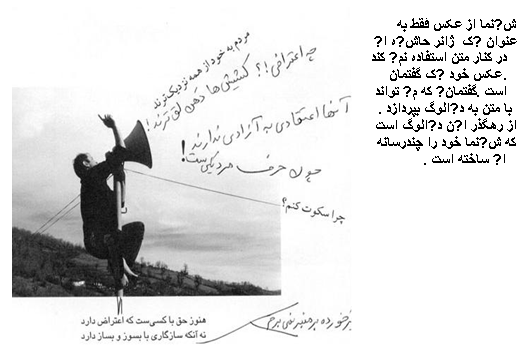 ش?نما از عکس فقط به
عنوان ?ک ژانر حاش?ه ا?
در کنار متن استفاده نم? کند
.عکس خود ?ک گفتمان
است .گفتمان? که م? تواند
با متن به د?الوگ بپردازد .
از رهگذر ا?ن د?الوگ است
که ش?نما خود را چندرسانه
ا? ساخته است .
مردم به خود از همه نزدیک‌ترند
چه اعترافی!؟ کشیش‌ها دهن لق ترند!
آنها اعتقادی به آزادی ندارند
چون حرف مرد یکی‌ست!
چرا سکوت کنم؟
هنوز حق با کسی‌ست که اعتراض دارد
نه آنکه سازگاری با بسوز و بساز دارد